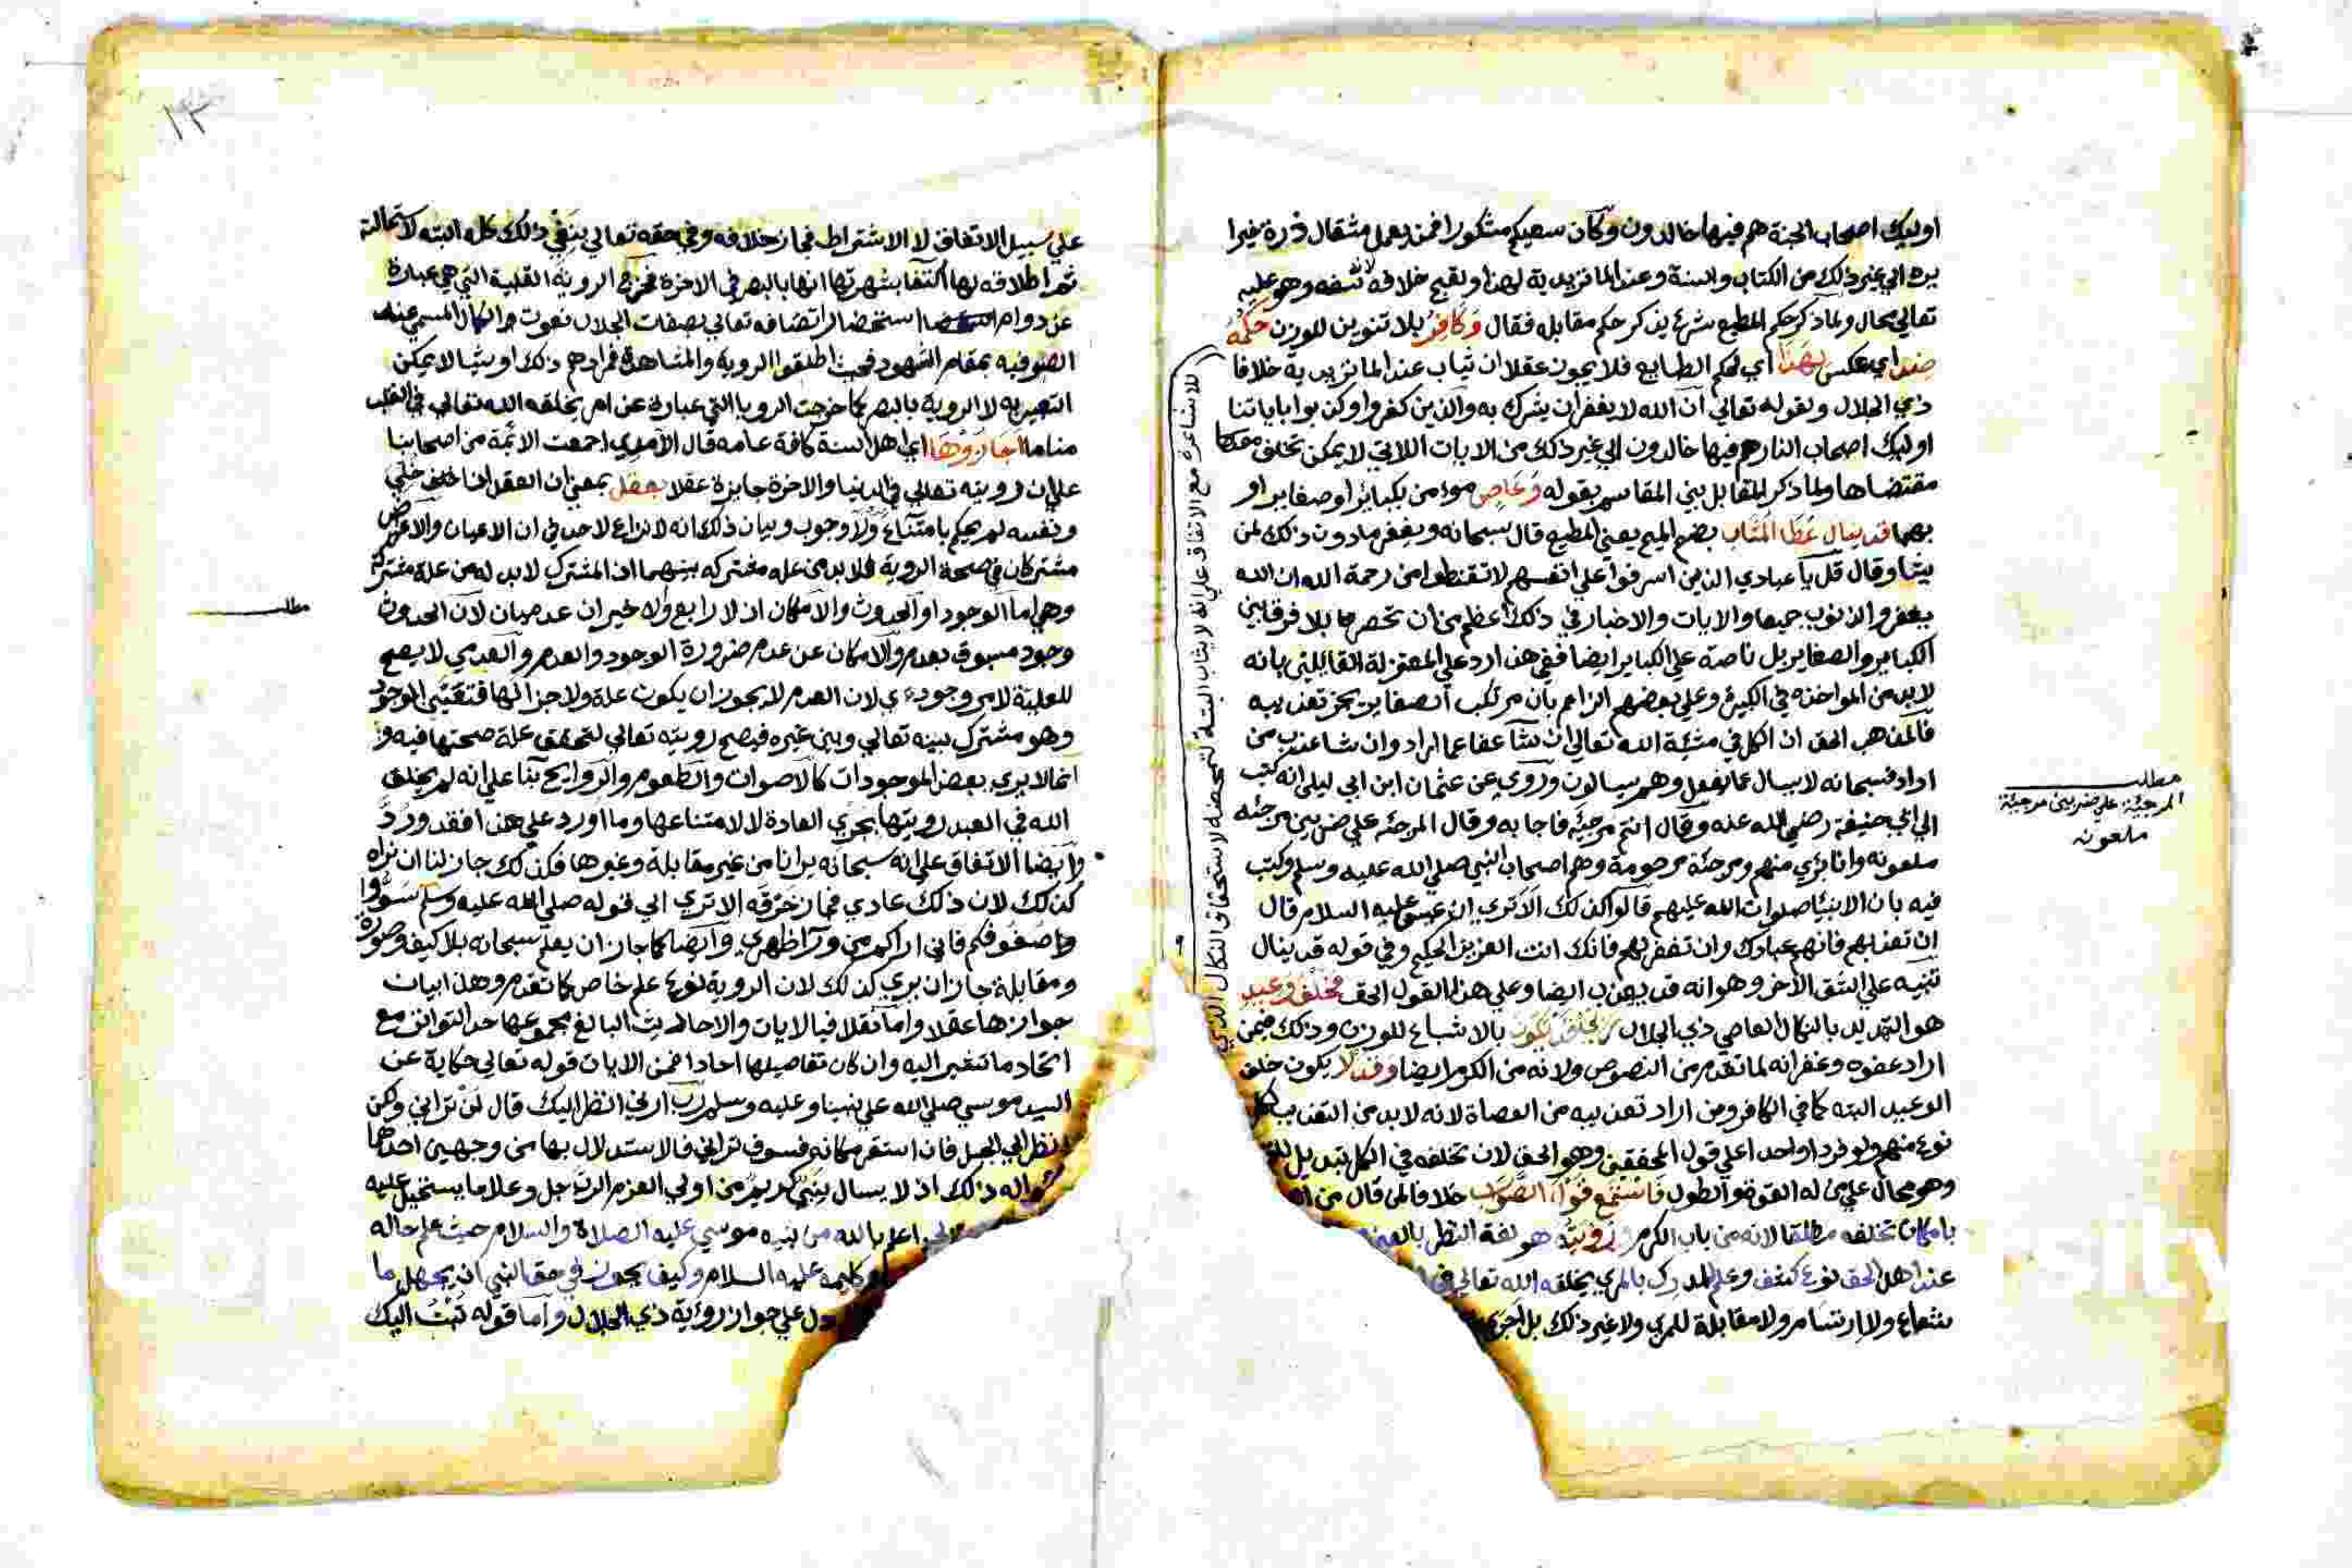 اوليك اصحاب الجنة هم فيها خالدون وكان سعيكم مشكورا فمن يعمل مثقال ذرة خيرا
يره الي غير ذلك من الكتاب والسنة وعند الماتريدية لهذا ولقبح خلافه لانه سفه وهو عليه
تعالي محال ولما ذكر حكم المطيع شرع يذكر حكم مقابله فقال وكافر بلا تنوين للوزن حكمه
ضد اي عكس لهذا اي لحكم الطايع فلا يجوز عقلا ان يثاب عند الماتريدية خلافا
للاشاعرة مع الاتفاق علي انه لا يثاب البتة لتمحضه لاستحقاق النكال الذي
ذي الجلال ولقوله تعالي ان الله لا يغفر ان يشرك به والذين كفروا وكذبوا باياتنا
اوليك اصحاب النار هم فيها خالدون الي غير ذلك من الايات اللاتي لا يمكن تخلف
مقتضاها ولما ذكر المقابل بين المقاسم بقوله وعاص مومن بكباير او صغاير او
بهما قد ينال عطا المثاب بضم الميم يعني المطيع قال سبحانه ويغفر ما دون ذلك لمن
يشا وقال قل يا عبادي الذين اسرفوا علي انفسهم لا تقنطوا من رحمة الله ان الله
يغفر الذنوب جميعا والايات والاخبار في ذلك اعظم من ان تحصر ما بلا فرق بين
الكباير والصغاير بل ناصة علي الكباير ايضا ففي هذا رد علي المعتزلة القايلين بانه
لابد من المواخذه في الكبيرة وعلي بعضهم الزاعم بان مرتكب الصغاير يجز تعذيبه
فالمذهب الحق ان الكل في مشئة الله تعالي ان شا عفا عما اراد وان شا عذب من
اراد فسبحانه لا يسال عما يفعل وهم يسالون وروي عن عثمان ابن ابي ليلي انه كتب
الي ابي حنيفة رضي الله عنه وقال انتم مرجئة فاجابه وقال المرجئه علي ضربين مرجئه
ملعونه وانا بري منهم ومرجئة مرحومة وهم اصحاب النبي صلي الله عليه وسلم وكتب
فيه بان الانبيا صلوات الله عليهم قالوا كذلك الا تري ان عيسي عليه السلام قال
ان تعذبهم فانهم عبادك وان تغفر لهم فانك انت العزيز الحكيم وفي قوله قد ينال
تنبيه علي الشق الاخر وهو انه قد يعذب ايضا وعلي هذا القول الحق فخلف وعيد
هو التهديد بالنكال العاصي ذي الجلال بالاشباع للوزن وذلك فيمن
اراد عفوه وغفرانه لما تقدم من النصوص ولانه من الكرم ايضا وقد لا يكون خلف
الوعيد البته كما في الكافر ومن اراد تعذيبه من العصاة لانه لابد من التعذيب لكل
نوع منهم ولو فردا واحدا علي قول المحققين وهو الحق لان تخلفه في الكل تبديل
وهو محال علي من له القوة والطول فاستمع قول الصواب خلافا لمن قال من
بامكان تخلفه مطلقا لانه من باب الكرم ورويته هو لغة النظر بالعين
عند اهل الحق نوع كشف وعلم للمدرك بالمري يخلقه الله تعالي
شعاع ولا ارتسام ولا مقابلة للمري ولا غير ذلك بل اجري
مطلب
المرجئة علي ضربين مرجئة
ملعونه
١٣
علي سبيل الاتفاق لا الاشتراط فجاز خلافه وفي حقه تعالي ينتفي ذلك كله البته لاستحالته
ثم اطلاقه لها اكتفا بشهرتها انها بالبصر في الاخرة فخرج الروية القلبية التي هي عبارة
عن دوام استحضار اتصافه تعالي بصفات الجلال نعوت والكمال المسمي عند
الصوفيه بمقام الشهود فحيث اطلقوا الروية والمشاهدة فمرادهم ذلك او شيا لا يمكن
التعبير به لا الروية بالبصر كما خرجت الرويا التي عبارة عن امر يخلقه الله تعالي في القلب
مناما اجازوها اي اهل السنة كافة عامه قال الآمدي اجمعت الائمة من اصحابنا
علي ان رويته تعالي في الدنيا والاخرة جايزة عقلا بعقل بمعني ان العقل اذا خلي
ونفسه لم يحكم بامتناع ولا وجوب وبيان ذلك انه لا نزاع لاحد في ان الاعيان والاعراض
مشتركان في صحة الروية فلابد من علة مشتركه بينهما اذ المشترك لابد له من علة مشتركة
وهي اما الوجود او الحدوث والامكان اذ لا رابع والاخيران عدميان لان الحدوث
وجود مسبوق بعدم والامكان عن عدم ضرورة الوجود والعدم والعدمي لا يصح
للعلية لامر وجودي لان العدم لا يجوز ان يكون علة ولا جزا لها فتعين الموجود
وهو مشترك بينه تعالي وبين غيره فيصح رويته تعالي لتحقق علة صحتها فيه و
انما لا يري بعض الموجودات كالاصوات والطعوم والروايح بنا علي انه لم يخلق
الله في العبد رويتها بجري العادة لا لامتناعها وما اورد علي هذا فقد ورد
وايضا الاتفاق علي انه سبحانه يرانا من غير مقابلة وغيرها فكذلك جاز لنا ان نراه
كذلك لان ذلك عادي فجاز خرقه الا تري الي قوله صلي الله عليه وسلم سووا
صفوفكم فاني اراكم من ورآ ظهري وايضا كما جاز ان يعلم سبحانه بلا كيف وصورة
ومقابلة جاز ان يري كذلك لان الروية نوع علم خاص كما تقدم وهذا بيان
جوازها عقلا واما نقلا فبالايات والاحاديث البالغ مجموعها حد التواتر مع
اتحاد ما تشير اليه وان كان تفاصيلها احادا فمن الايات قوله تعالي حكاية عن
السيد موسي صلي الله علي نبينا وعليه وسلم رب ارني انظر اليك قال لن تراني ولكن
انظر الي الجبل فان استقر مكانه فسوف تراني فالاستدلال بها من وجهين احدهما
سواله ذلك اذ لا يسال نبي كريم من اولي العزم الرب جل وعلا ما يستحيل عليه
اعلم بالله من نبيه موسي عليه الصلاة والسلام حيث علم حاله
كليمه عليه السلام وكيف يجوز في حق النبي ان يجهل ما
دل علي جواز رؤية ذي الجلال واما قوله تبت اليك
مطلب